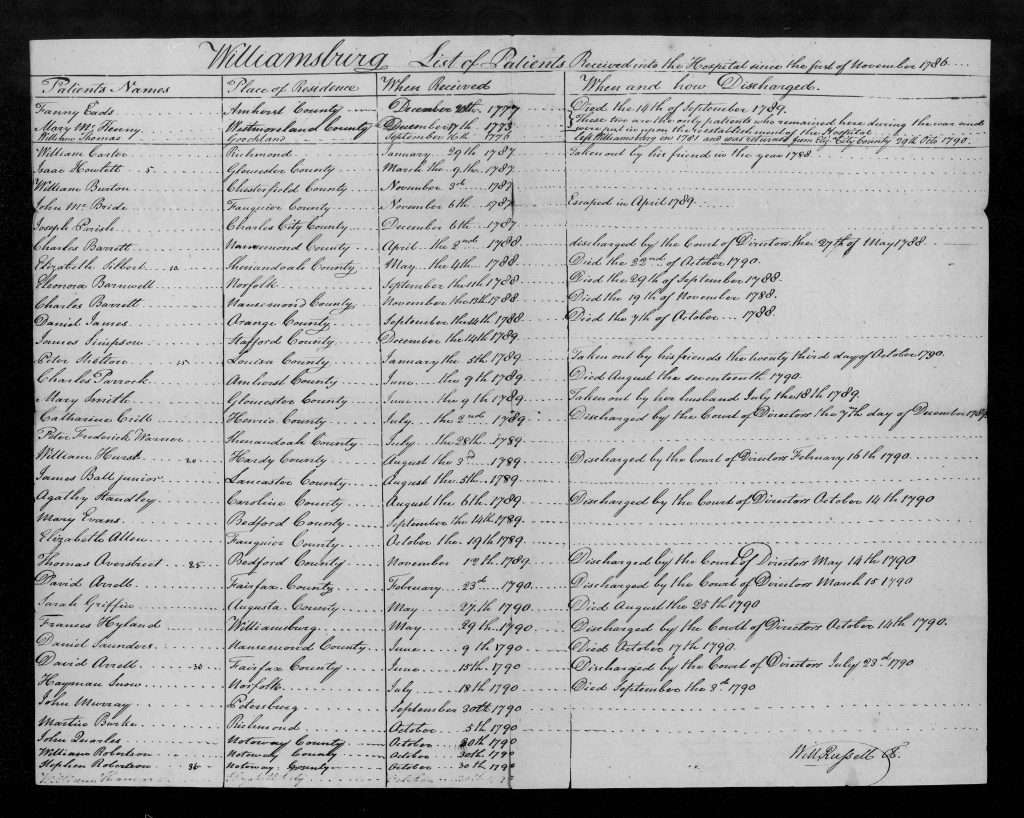 Williamsburg List of Patients Received into the Hospital since the first of November 1786
Patients Names Place of Residence When Received When and how Discharged.
Fanny Eads Amherst County December 20th 1777 Died the 14th of September 1789.
Mary Mc Henny Westmoreland County December 17th 1773 These two are the only patients who remained here during the war and were put in upon the reestablishment of the Hospital
William Thomas Goochland September 16th 1776 left Williamsburg in 1781 and was returned from City County 29th Octo 1790.
William Carter Richmond January 29th 1787 Taken out by his friend in the year 1788
Isaac Howlett 5 Gloucester County March the 9th 1787
William Burton Chesterfield County November 3rd 1787
John Mc Bride Fauquier County November 6th 1787 Escaped in April 1789
Joseph Parish Charles City County December 6th 1787
Charles Barrett Nansemond County April the 2nd 1788 discharged by the Court of Directors the 27th of May 1788
Elizabeth 10 Shenandoah County May the 4th 1788 Died the 22nd of October 1790.
Elenora Barnwell Norfolk September the 11th 1788 Died the 29th of September 1788
Charles Barrett Nansemond County November the 1788 Died the 19th of November 1788.
Daniel James Orange County September the 14th 1788 Died the 7th of October 1788
James Simpson Stafford County December the 14th 1789
Peter 15 Louisa County January the 5th 1789 Taken out by his friends the twenty third day of October 1790.
Charles Parrock Amherst County June the 9th 1789 Died August the seventeenth 1790
Mary Smith Gloucester County June the 9th 1789 Taken out by her husband July the 18th 1789
Catharine Henrico County July the 2nd 1789 Discharged by the Court of Directors the 7th day of December 1789
Peter Frederick Warner Shenandoah County July the 28th 1789
William Hurst 20 Hardy County August the 3d 1789 Discharged by the Court of Directors February 16th 1790
James Ball junior Lancaster County August the 5th 1789
Agathy Handley Caroline County August the 6th 1789 Discharged by the Court of Directors October 14th 1790
Mary Evans Bedford County September the 14th 1789
Elizabeth Allen Fauquier County October the 19th 1789
Thomas Overstreet 25 Bedford County November 12th 1789 Discharged by the Court of Directors May 14th 1790
David Arrell Fairfax County February 23d 1790 Discharged by the Court of Directors March 15 1790
Sarah Griffin Augusta County May 27th 1790 Died August the 25th 1790
Frances Hyland Williamsburg May 29th 1790 Discharged by the Court of Directors October 14th 1790
Daniel Saunders Nansemond County June 9th 1790 Died October 17th 1790.
David Arrell 30 Fairfax County June 15th 1790 Discharged by the Court of Directors July 23d 1790
Hayman Snow Norfolk July 18th 1790 Died September the 3d 1790
John Murray Petersburg September 30th 1790
Martin Burke Richmond October 5th 1790
John Quarles Notoway County October 30th 1790
William Robertson Notoway County October 30th 1790
Stephen Robertson 36 Notoway County October 30th 1790
William October 30th
Will Russell Ck.